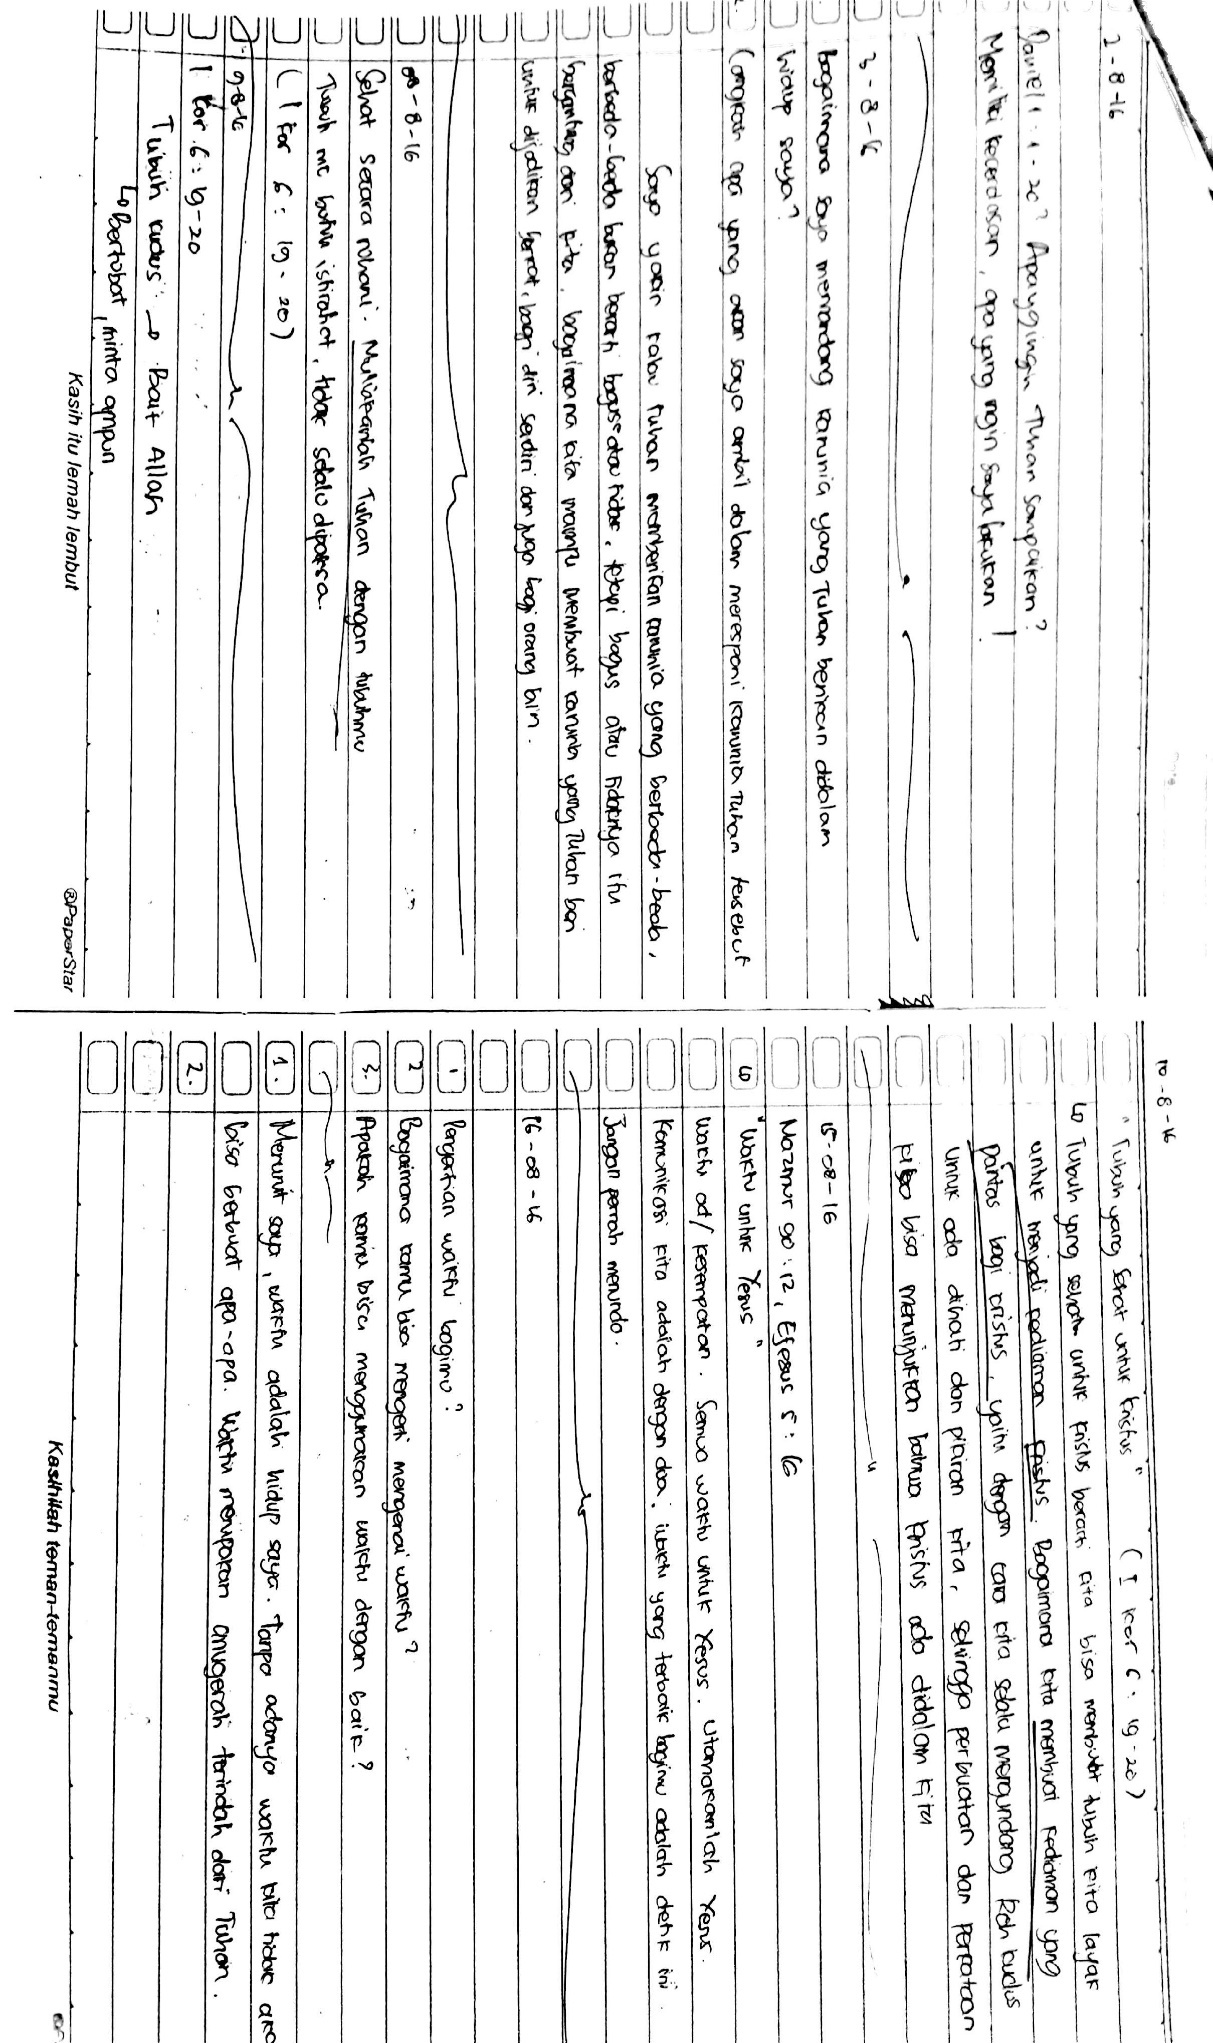 2-8-16
Daniel 1: 1-20? Apa yg ingin Tuhan sampaikan?
Memiliki kecerdasan, apa yang ingin saya lakukan!
3-8-16
Bagaimana saya memandang karunia yang Tuhan berikan didalam
hidup saya?
Langkah apa yang akan saya ambil dalam meresponi karunia Tuhan tersebut
Saya yakin kalau Tuhan memberikan karunia yang berbeda-beda,
berbeda-beda bukan berarti bagus atau tidak, tetapi bagus atau tidaknya itu
bergantung dari kita, bagaimana kita mampu membuat karunia yang Tuhan beri
untuk dijadikan berkat, bagi diri sendiri dan juga bagi orang lain.
8-8-16
Sehat secara rohani. Muliakanlah Tuhan dengan tubuhmu
Tubuh me butuh istirahat, tidak selalu dipaksa.
(1 Kor 6: 19-20)
9-8-16
1 Kor. 6: 19-20
Tubuh kudus: → Bait Allah
↳ Bertobat, minta ampun
Kasih itu lemah lembut
@PaperStar
10-8-16
"Tubuh yang sehat untuk Kristus" (I Kor 6: 19-20)
↳ Tubuh yang sehat untuk Kristus berarti kita bisa membuat tubuh kita layak
untuk menjadi kediaman Kristus. Bagaimana kita membuat kediaman yang
pantas bagi Kristus, yaitu dengan cara kita selalu mengundang Roh kudus
untuk ada dihati dan pikiran kita, sehingga perbuatan dan perkataan
kita bisa menunjukkan bahwa Kristus ada didalam kita
15-08-16
Mazmur 90:12, Efesus 5:16
↳ "Waktu untuk Yesus"
Waktu ad/ kesempatan. Semua waktu untuk Yesus. Utamakanlah Yesus.
Komunikasi kita adalah dengan doa, waktu yang terbaik bagimu adalah detik ini.
Jangan pernah menunda.
16-08-16
1 Pengertian waktu bagimu?
2 Bagaimana kamu bisa mengerti mengenai waktu?
3. Apakah kamu bisa menggunakan waktu dengan baik?
1. Menurut saya, waktu adalah hidup saya. Tanpa adanya waktu kita tidak
bisa berbuat apa-apa. Waktu merupakan anugerah terindah dari Tuhan.
2.
Kasihilah teman-temanmu